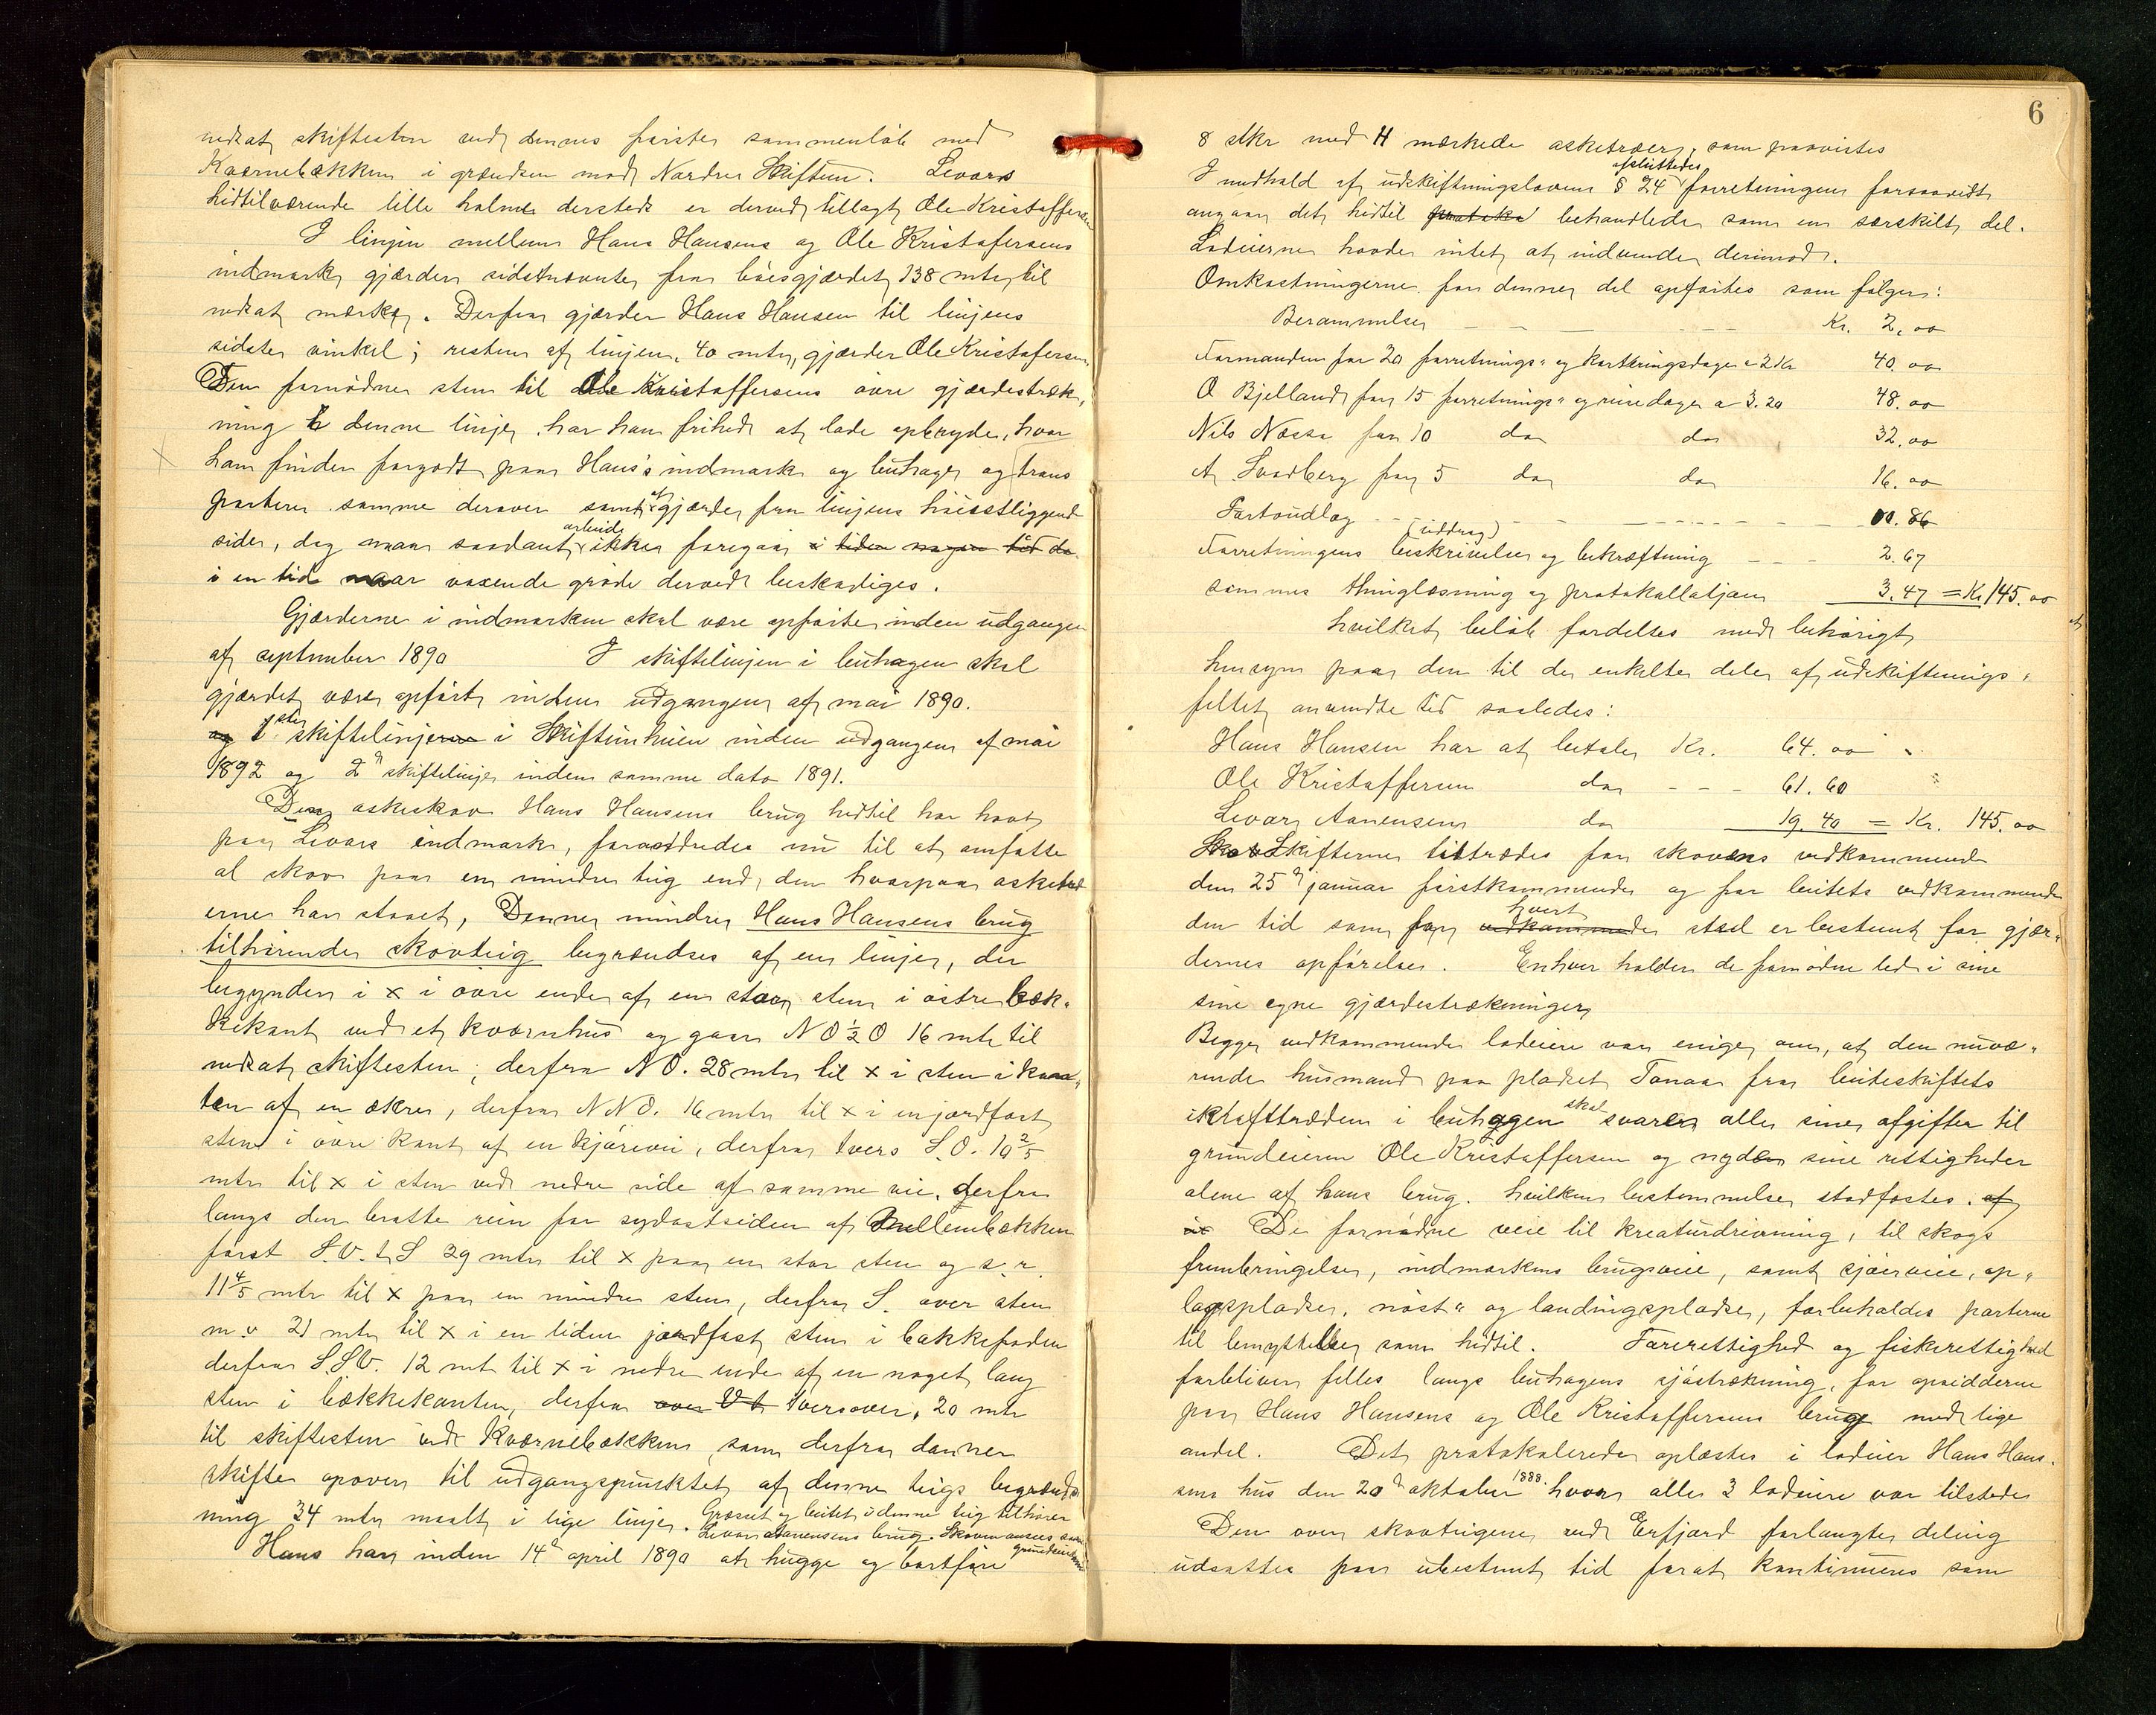 nedsat skiftesten ved dennes første sammenløb med
Kværnebækken i grændsen mod Nordre Skiftun. Levors
hidtilværende lille holme dersteds er derved tillagt Ole Kristoffersen
I linjen mellem Hans Hansens og Ole Kristofersens
indmark gjærder sidstnævnte fra bøesgjærdet 138 mtr til
nedsat mærke. Derfra gjærder Hans Hansen til linjens
sidste vinkel; resten af linjen, 40 mtr, gjærder Ole Kristofersen
Den fornødne sten til Ole Kristoffersens øvre gjærdestræk,
ning i denne linje har han frihed at lade opbryde, hvor
han finder forgodt paa Hans's indmark og beithage og trans
portere samme derover samt at gjærde fra linjens høiestliggend
side, dog maa saadant arbeide ikke foregaa i tiden nogen tid da
i en tid naar voxende grøde derved beskadiges.
Gjærderne i indmarken skal være opførte inden udgangen
af september 1890 I skiftelinjen i beithagen skal
gjærdet være opført inden udgangen af mai 1890.
og 1ste skiftelinjerne i Skiftunheien inden udgangen af mai
1892 og 2n skiftelinje inden samme dato 1891.
Den askeskov Hans Hansens brug hidtil har havt
paa Levors indmark, forandredes nu til at omfatte
al skov paa en mindre teig end den hvorpaa asketræ
erne har staaet, Denne mindre Hans Hansens brug
tilhørende skovteig begrændses af en linje, der
begynder i x i øvre ende af en stor sten i østre bæk„
kekant ved et kværnhus og gaar N O ½ O 16 mtr til
nedsat skiftesten, derfra N O. 28 mtr til x i sten i kan„
ten af en åkre, derfra N N O. 16 mtr til x i en jordfast
sten i øvre kant af en kjørevei, derfra tvers S. O. 10 2/5
mtr til x i sten ved nedre side af samme vei, derfra
langs den bratte rein for sydostsiden af Mellembækken
først S. V. t. S 29 mtr til x paa en stor sten og s. r.
11 4/5 mtr til x paa en mindre sten, derfra S. over sten
m. v 21 mtr til x i en liden jordfast sten i bakkefoden
derfra S. S. V. 12 mtr til x i nedre ende af en noget lang
sten i bækkekanten, derfra over V t. tversover, 20 mtr
til skiftesten ved Kværnebækken, som derfra danner
skifte opover til udgangspunktet af denne teigs begrænds
ning 34 mtr maalt i lige linje. Græsset og beitet i denne teig tilhører
Levor Aanensens brug. Skoven ansees som
grundeiendom
Hans har inden 14d april 1890 at hugge og bortføre
6
8 stkr med H mærkede asketræer, som paavistes
I medhold af udskiftningslovens § 24 afsluttedes forretningen forsaavidt
angaar det hidtil protoko behandlede som en særskilt del.
Lodeierne havde intet at indvende derimod.
Omkostningerne for denne del opførtes som følger:
Berammelse Kr. 2,00
Formanden for 20 forretnings- og karteringsdage a 2 Kr 40,00
O Bjelland for 15 forretnings- og reisedage a 3.20 48.00
Nils Næssa for 10 do do 32.00
A Svadberg for 5 do do 16.00
Portoudlæg 0.86
Forretningens beskrivelse (uddrag) og bekræftning 2.67
sammes thinglæsning og protokollation 3.47 = Kr 145.00
hvilket beløb fordeltes med behørigt
hensyn paa den til de enkelte dele af udskiftnings„
feltet anvendte tid saaledes:
Hans Hansen har at betale Kr. 64.00
Ole Kristoffersen do 61.60
Levor Aanensen do 19.40 = Kr. 145.00
Skov Skifterne tiltrædes for skovens vedkommende
den 25d januar førstkommende og for beitets vedkommende
den tid som for vedkommende hvert sted er bestemt for gjær„
dernes opførelse. Enhver holder de fornødne led i sine
sine egne gjærdestrækninger
Begge vedkommende lodeiere var enige om, at den nuvæ„
rende husmand paa pladset Tonaa fra beiteskiftets
ikrafttræden i beithagen skal svare alle sine afgifter til
grundeieren Ole Kristoffersen og nyde sine rettigheder
alene af hans brug. hvilken bestemmelse stadfæstes. af
De fornødne veie til kreaturdrivning, til skogs
frembringelse, indmarkens brugsveie, samt sjøerveie, op„
lagspladse, nøst- og landingspladse, forbeholdes parterne
til benyttelse som hidtil. Farerettighed og fiskerettighed
forbliver fælles langs beithagens sjøstrækning, for opsidderne
paa Hans Hansens og Ole Kristoffersens brug med lige
andel. Det protokollerede oplæstes i lodeier Hans Han„
sens hus den 20d oktober 1888. hvor alle 3 lodeiere var tilstede
Den over skovteigene ved Erfjord forlangte deling
udsattes paa ubestemt tid forat kontinueres som